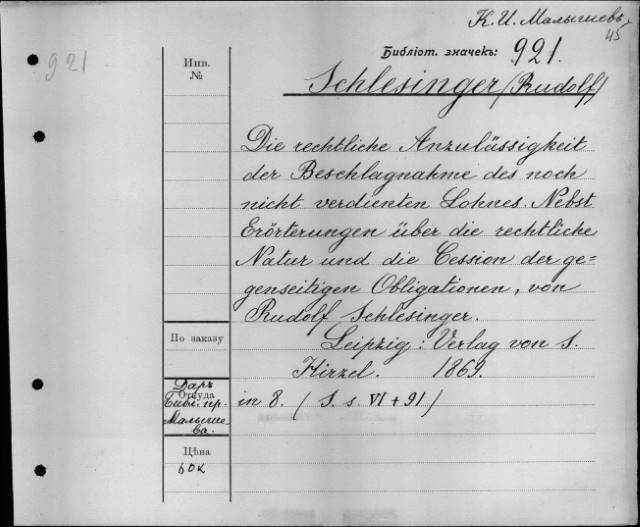 К. И. Малышевъ
45
921
Инв.
№
Библіот. значекъ: 921.
Schlesinger (Rudolf)
Die rechtliche Anzulässigkeit
der Beschlagnahme des noch
nicht verdienten Lohnes. Nebst
Erörterungen über die rechtliche
Natur und die Cession der ge=
genseitigen Obligationen, von
Rudolf Schlesinger.
По заказу
Leipzig: Verlag von S.
Hirzel. 1869.
Даръ
Откуда
Библ. пр.
Малыше
ва.
in 8. (S. s. VI + 91)
Цѣна
60к